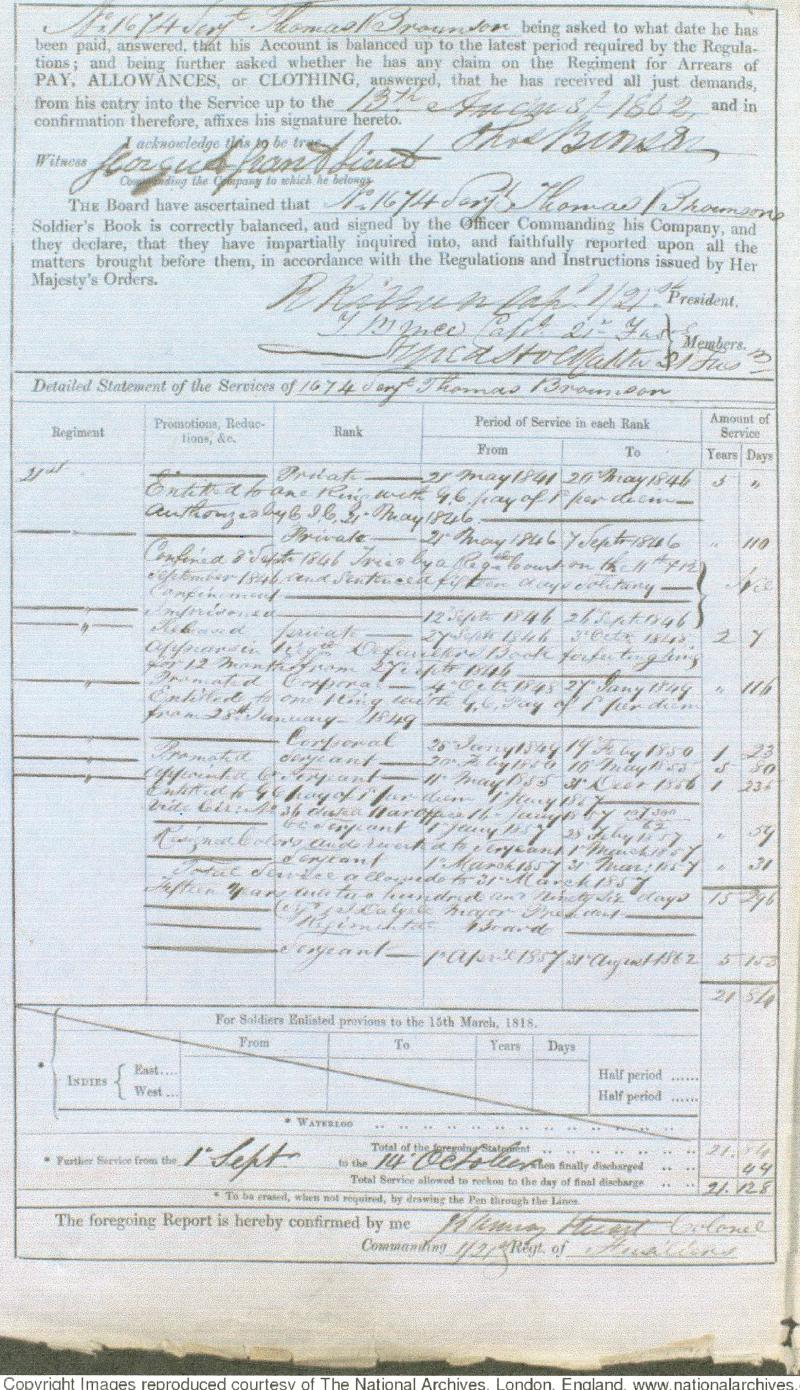 No. 1674 Serjt Thomas Brownson being asked to what date he has
been paid, answered, that his Account is balanced up to the latest period required by the Regula-
tions; and being further asked whether he has any claim on the Regiment for Arrears of
PAY, ALLOWANCES, or CLOTHING, answered, that he has received all just demands,
from his entry into the Service up to the 13th August 1862, and in
confirmation therefore, affixes his signature hereto.
I acknowledge this to be true Thos
Witness George Lieut
Commanding the Company to which he belongs
THE BOARD have ascertained that No. 1674 Serjt Thomas Brownsons
Soldier's Book is correctly balanced, and signed by the Officer Commanding his Company, and
they declare, that they have impartially inquired into, and faithfully reported upon all the
matters brought before them, in accordance with the Regulations and Instructions issued by Her
Majesty's Orders.
Capt. 1/21st President.
Capt. 21st Fus
Members.
21 Fus
Detailed Statement of the Services of 1674 Serjt Thomas Brownson
Regiment Promotions, Reduc- tions, &c. Rank Period of Service in each Rank Amount of Service
From To Years Days
21st Private 21st May 1841 20th May 1846 5 "
Entitled to one Ring with G.C. pay of 1d per diem
authorized by 21st May 1846
" Private 21st May 1846 7 Septr 1846 " 110
Confined 8 Septr 1846 Tried by a Regtl Court on the 11th & 12
September 1846 and Sentenced fifteen days solitary Nil
Confinement
" Imprisoned 12 Septr 1846 26 Septr 1846
" Released private 27 Septr 1846 3 Octr 1848 2 7
Appears in Regtl Defaulters Book forfeiting ring
for 12 Months from 27 Septr 1846
" Promoted Corporal 4th Octr 1848 27 Jany 1849 " 116
Entitled to one Ring with G.C. Pay of 1d per diem
from 28th January 1849
" Corporal 28 Jany 1849 19 Feby 1850 1 23
" Promoted Sergeant 20 Feby 1850 10 May 1855 5 80
" Appointed Cr Sergeant 11 May 1855 31 Decr 1856 1 235
Entitled to G.C. pay of 1d per diem 1st Jany 1857
Vide Cir: No. 36 dated War office 16 Jany 1857
Cr Sergeant 1st Jany 1857 28 Feby 1857 " 59
Resigned Colors and reverted to Sergeant 1st March 1857
Sergeant 1st March 1857 31 Mar: 1857 " 31
Total Service allowed to 31st March 1857
fifteen Years and two hundred and Ninety Six days 15 296
Major President
Regimental Board
Sergeant 1st April 1857 31st August 1862 5 153
21 84
For Soldiers Enlisted previous to the 15th March, 1818.
From To Years Days
* INDIES East.... Half period ......
West ... Half period ......
* WATERLOO
Total of the foregoing Statement 21. 84
* Further Service from the 1st Septr to the 14th October when finally discharged 44
Total Service allowed to reckon to the day of final discharge 21. 128
* To be erased, when not required, by drawing the Pen through the Lines.
The foregoing Report is hereby confirmed by me Stuart Colonel
Commanding 1/21st Regt. of Fusiliers
Copyright Images reproduced courtesy of The National Archives, London, England. www.nationalarchives.